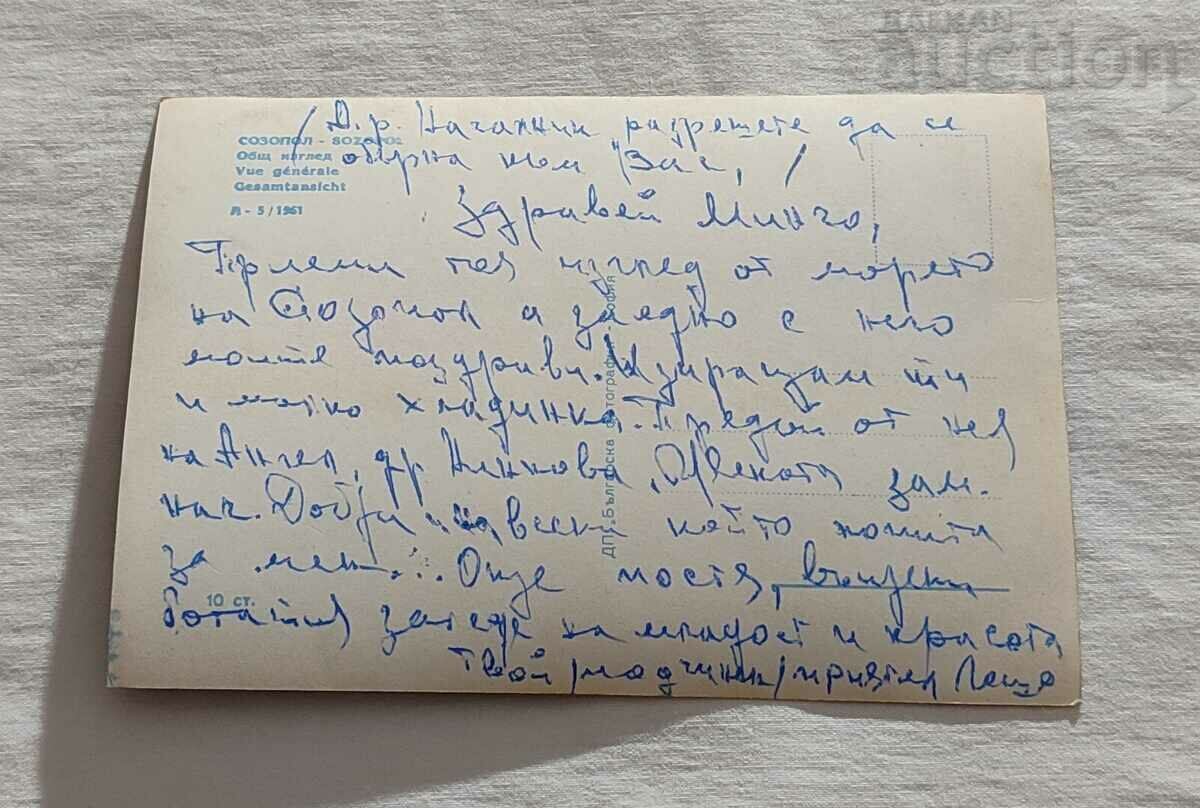 BALKAN
auction
/ Др. Началник разрешете да се
СОЗОПОЛ - SOZOPOL
обърна към Вас, /
Общ изглед
Vue générale
Gesamtansicht
Л - 5 / 1961
Здравей Минчо,
Приеми тоя изглед от морето
на Созопол а заедно с него
моите поздрави. Изпращам ти
и малко хладинка. Предай от нея
на Ангел, др. Нинкова,
зам.
нач. Добри и на всеки който попита
за мен... Още
10 ст.
на младост и красота
Твой /подчинен/ приятел
ДП „Българска фотография" - София